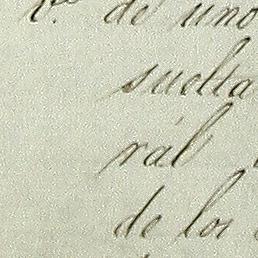 de uno
suelta
ral
de los